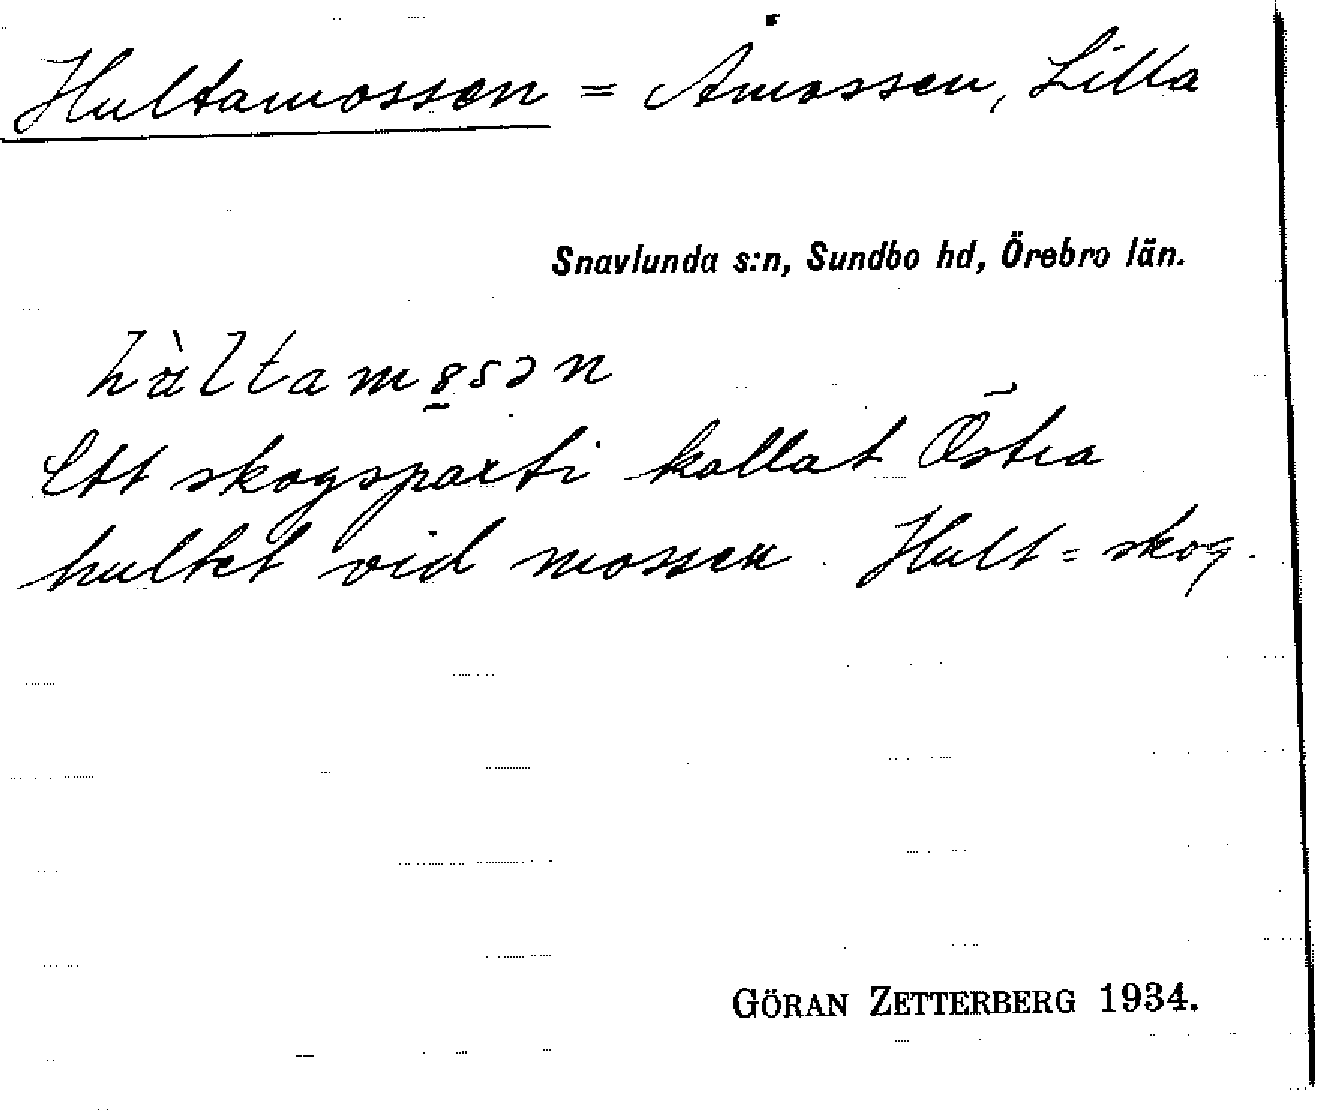 Hultamossen = Åmossen, Lilla
Snavlunda s:n, Sundbo hd, Örebro län.
Ett skogsparti kallat Östra
hultet vid mossen. Hult = skog.
GÖRAN ZETTERBERG 1934.